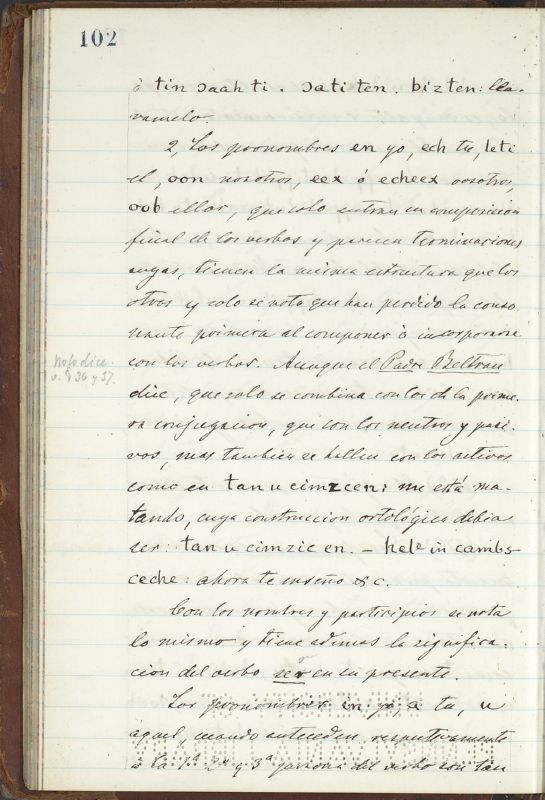 102
ó tin ɔaah ti. ɔati ten. bizten: lle-
vamelo.
2, Los pronombres en yo, ech tu, leti
el, oon nosotros, eex ó echeex vosotros,
oob ellos, que solo entran en composicion
final de los verbos y parecen terminaciones
suyas, tienen la misma estructura que los
otros y solo se nota que han perdido la conso-
nante primera al componer ó incorporarse
con los verbos. Aunque el Padre Beltran
No lo dice.
v. § 36 y 37.
dice, que solo se combina con los de la prime-
ra conjugacion, que son los neutros y pasi-
vos, mas tambien se hallan con los activos
como en tan u cimzcen: me está ma-
tando, cuya construccion ortológica debia
ser: tan u cimzic en. - hele in cambs-
ceche: ahora te enseño &c.
Con los nombres y participios se nota
lo mismo y tiene ademas la significa-
cion del verbo ser en su presente.
Los pronombres in yo, a tu, u
aquel, cuando anteceden respectivamente
á la 1ª 2ª y 3ª persona del verbo son tan